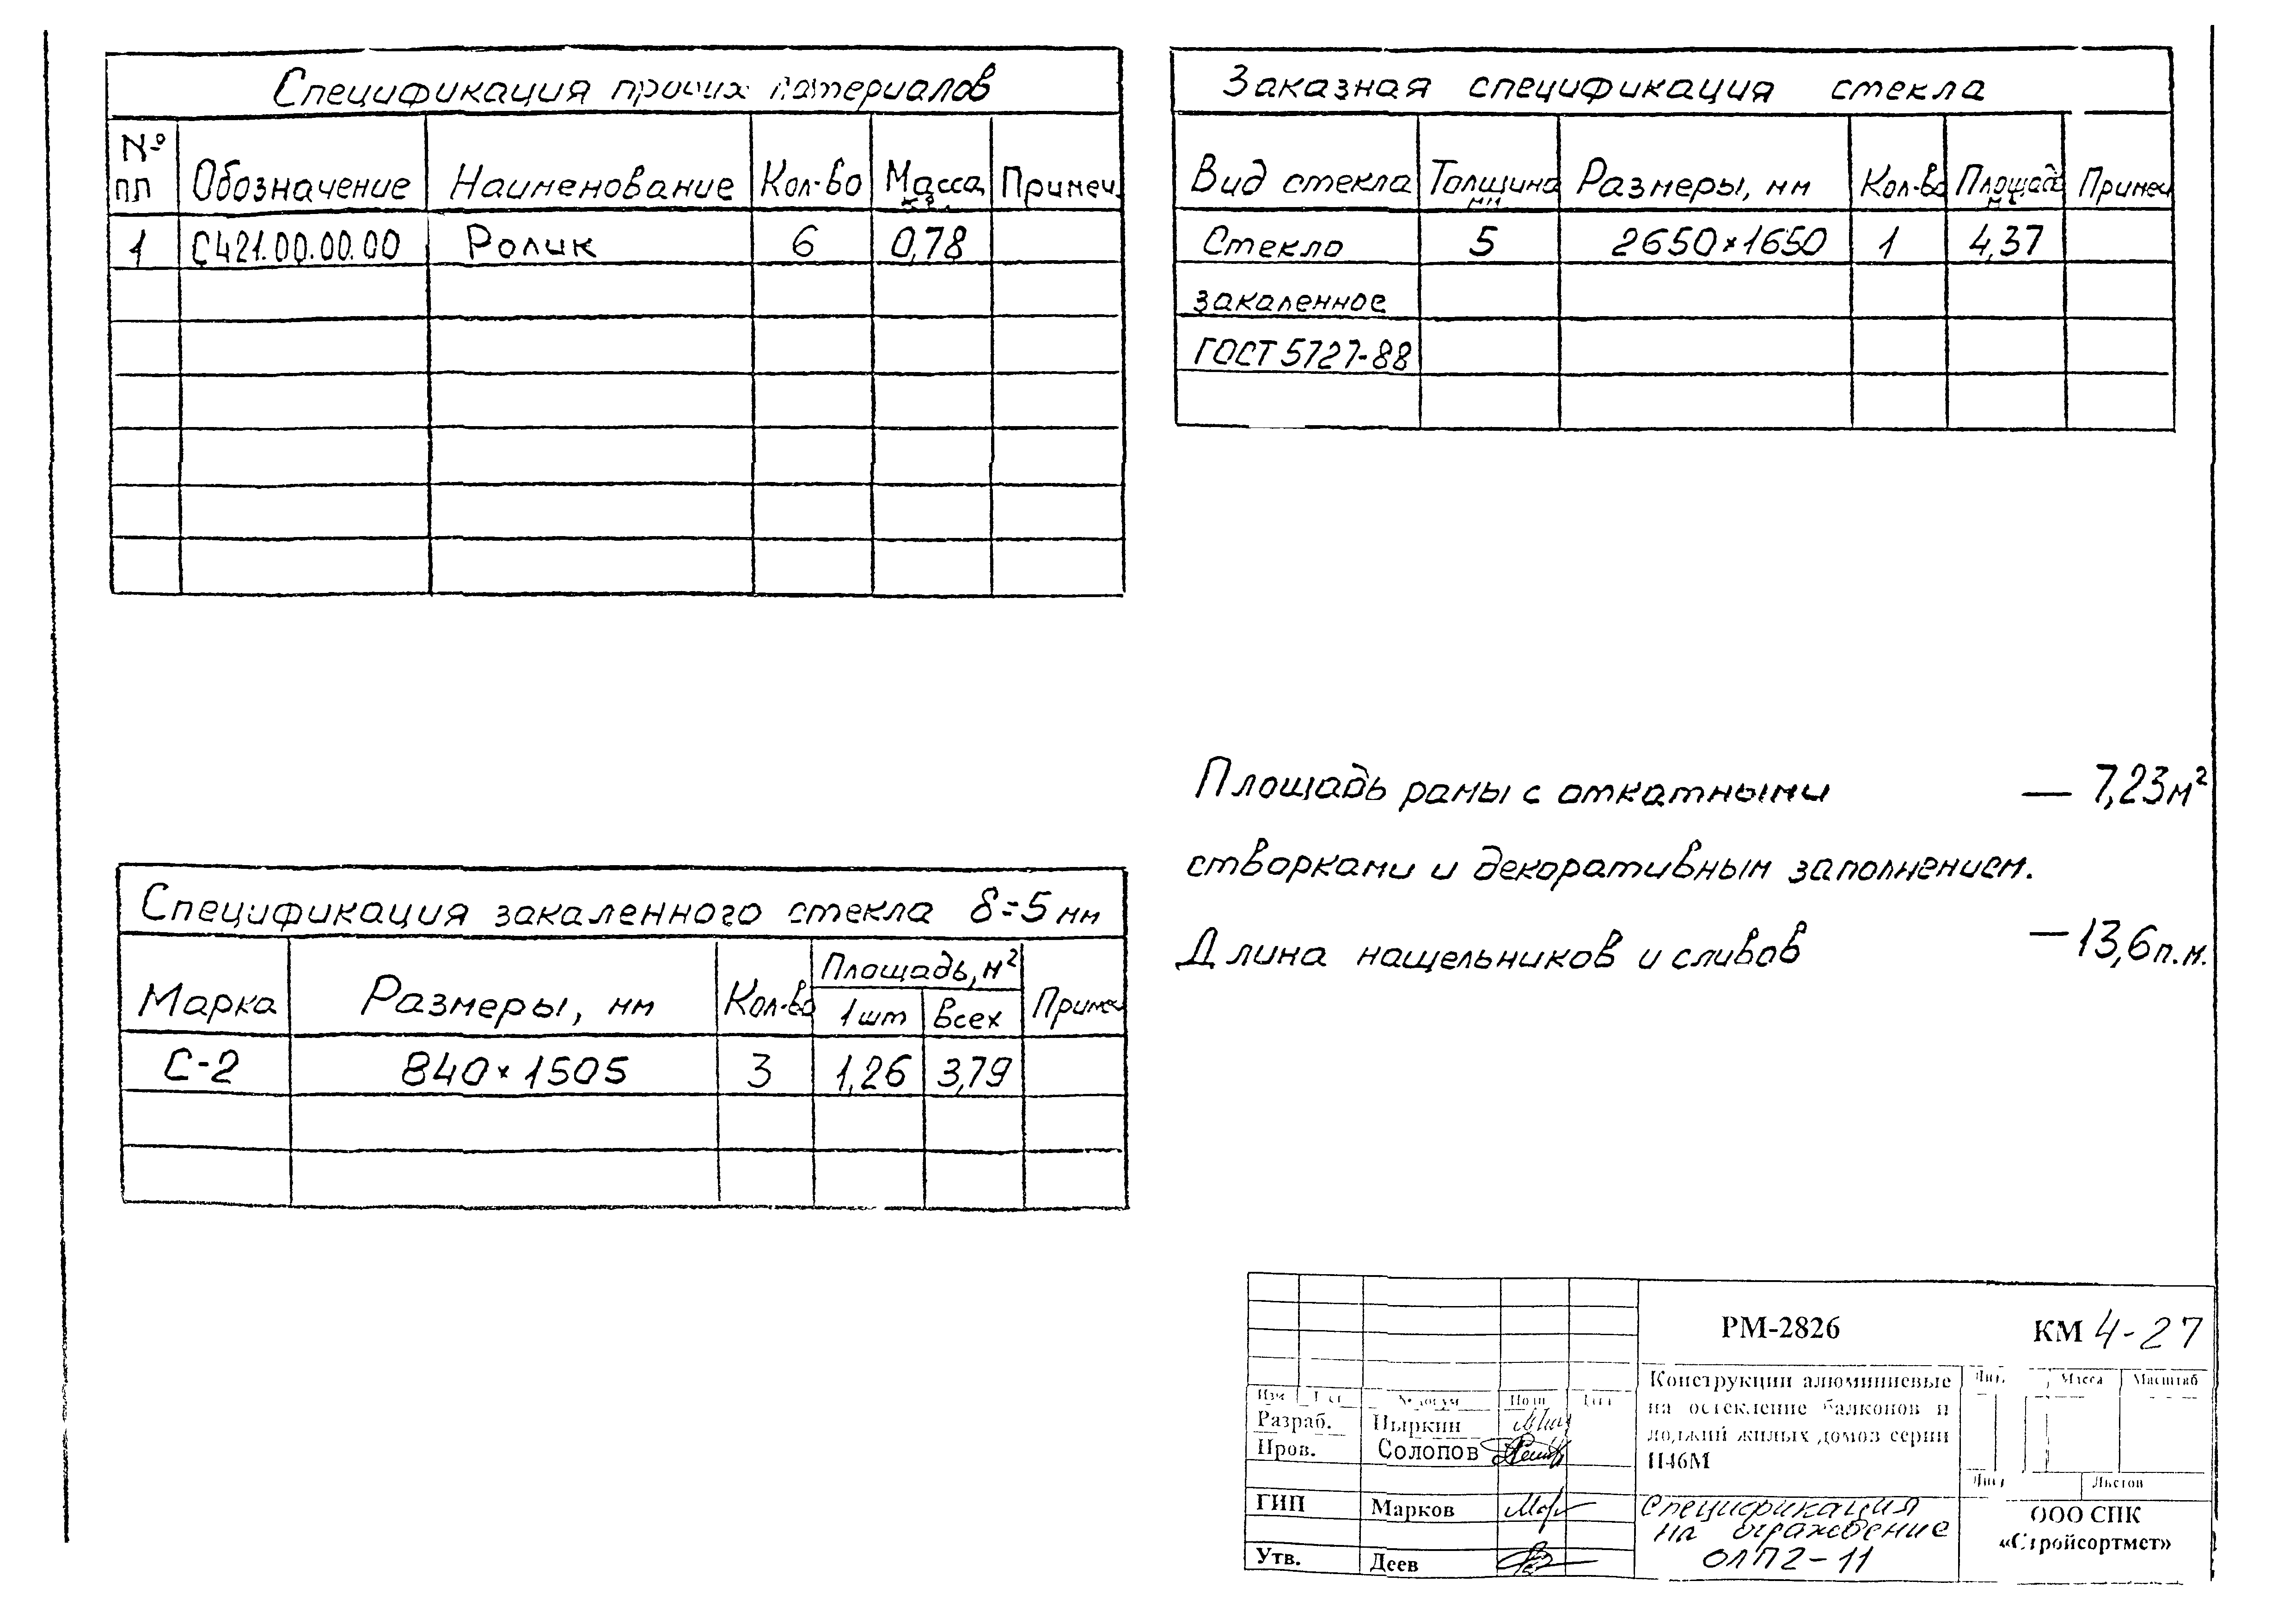 Спецификация прочих материалов
№ пп Обозначение Наименование Кол-во Масса кг. Примеч.
1 С421.00.00.00 Ролик 6 0,78
Заказная спецификация стекла
Вид стекла Толщина мм Размеры, мм Кол-во Площадь м² Примеч
Стекло 5 2650×1650 1 4,37
закаленное
ГОСТ 5727-88
Площадь рамы с откатными — 7,23м²
створками и декоративным заполнением.
Длина нащельников и сливов — 13,6п.м.
Спецификация закаленного стекла δ=5мм
Марка Размеры, мм Кол-во Площадь, м² Примеч
1шт Всех
С-2 840×1505 3 1,26 3,79
РМ-2826 КМ 4-27
Изм Лист № докум Подп Дата
Разраб. Пыркин
Пров. Солопов
ГИП Марков
Утв. Деев
Конструкции алюминиевые
на остекление балконов и
лоджий жилых домов серии
П46М
Лит. Масса Масштаб
Лист Листов
Спецификация
на ограждение
ОЛП2-11
ООО СПК
«Стройсортмет»